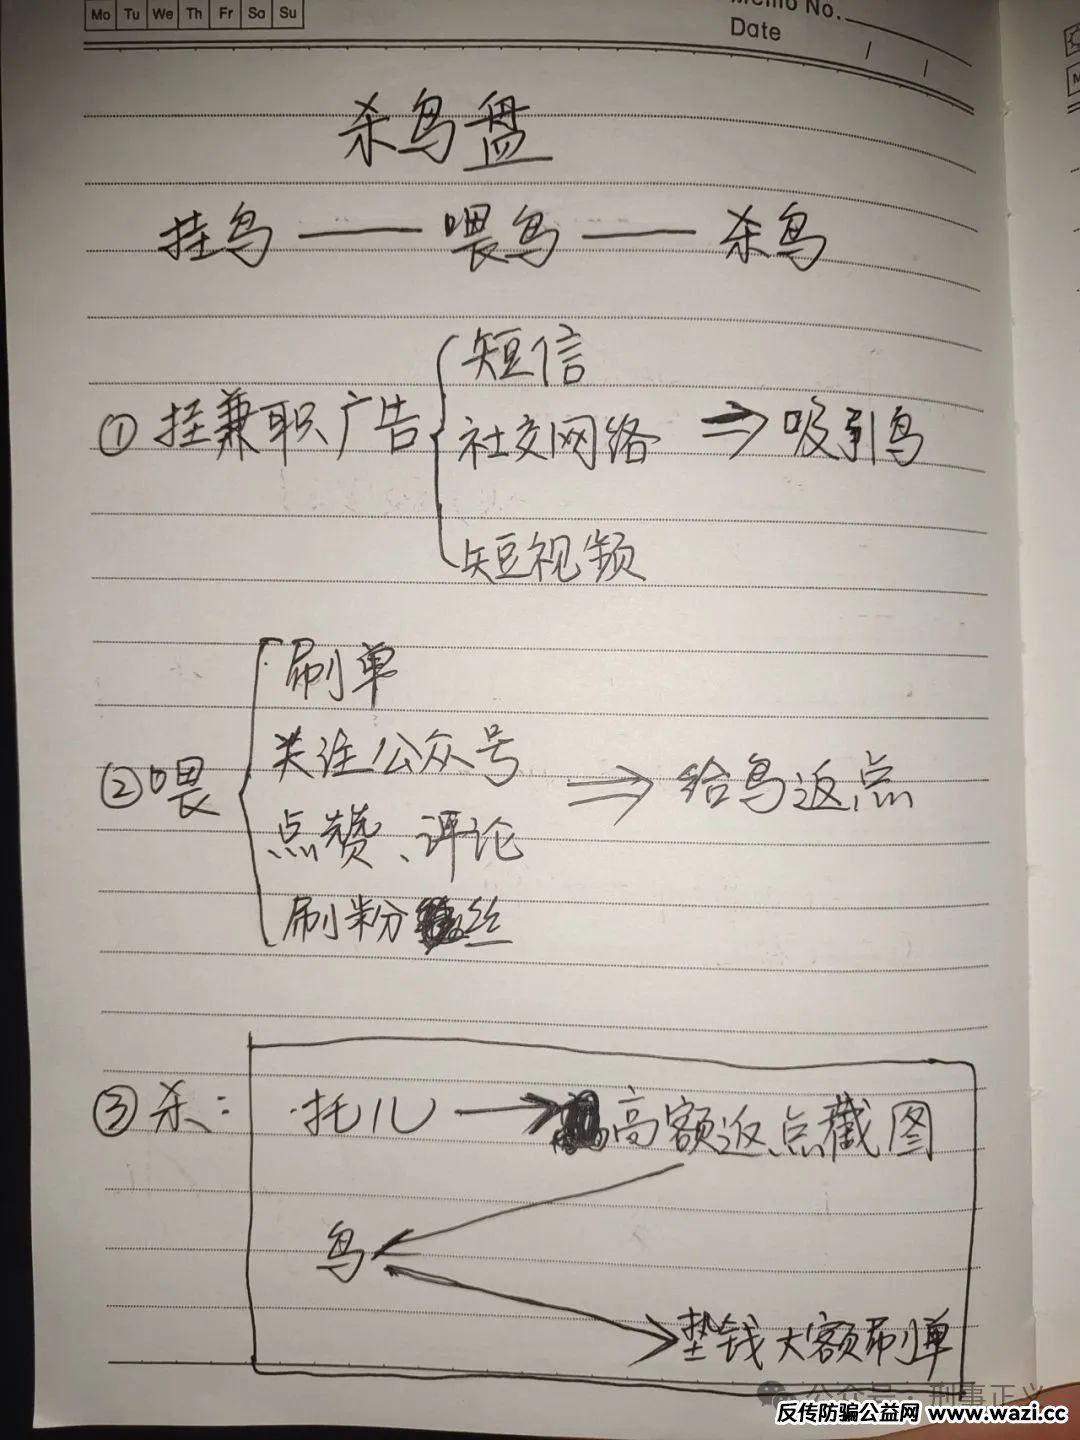 Mo Tu We Th Fr Sa Su
Memo No.
Date / /
杀鸟盘
挂鸟 — 喂鸟 — 杀鸟
① 挂兼职广告 { 短信
社交网络 ⇒ 吸引鸟
短视频
② 喂 { 刷单
关注公众号 ⇒ 给鸟返点
点赞、评论
刷粉丝
③ 杀: 托儿 → 高额返点截图
鸟
→ 垫钱大额刷单
公众号·刑事正义
反传防骗公益网 www.wazi.cc